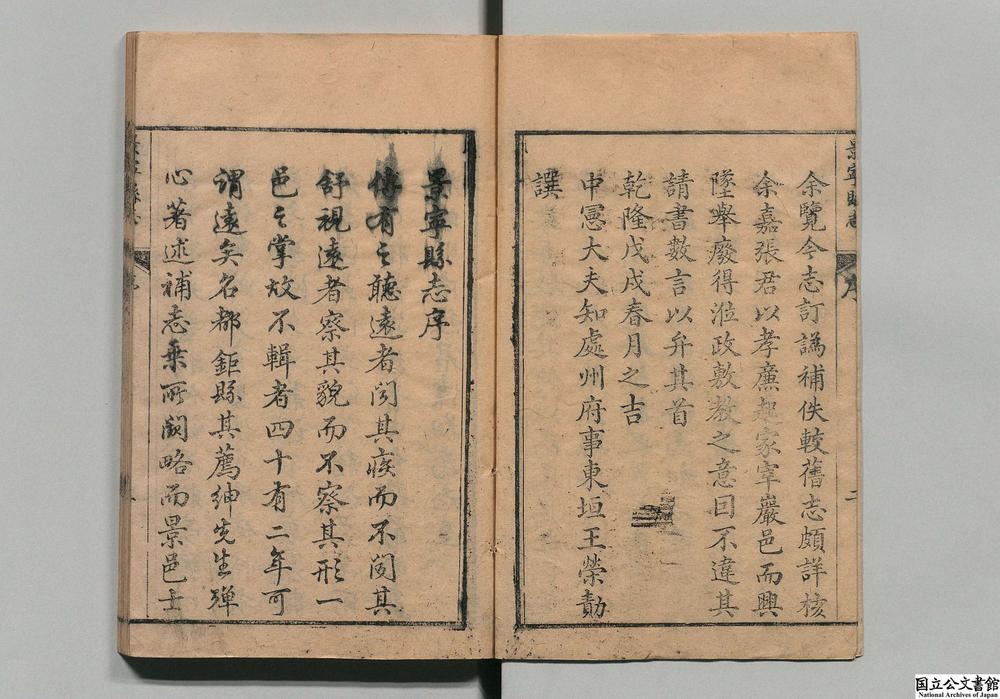 余覽今志訂譌補佚較舊志頗詳核
余嘉張君以孝廉起家宰嚴邑而興
墜舉廢得涖政敷教之意回不違其
請書數言以弁其首
乾隆戊戌春月之吉
中憲大夫知處州府事東垣王榮勣
譔
序
二
景寧縣志序
傳有之聽遠者闻其疾而不闻其
舒視遠者察其貌而不察其形一
邑之掌故不輯者四十有二年可
謂遠矣名都鉅縣其薦紳先生殫
心著述補志乗所闕略而景邑士
国立公文書館
National Archives of Japan